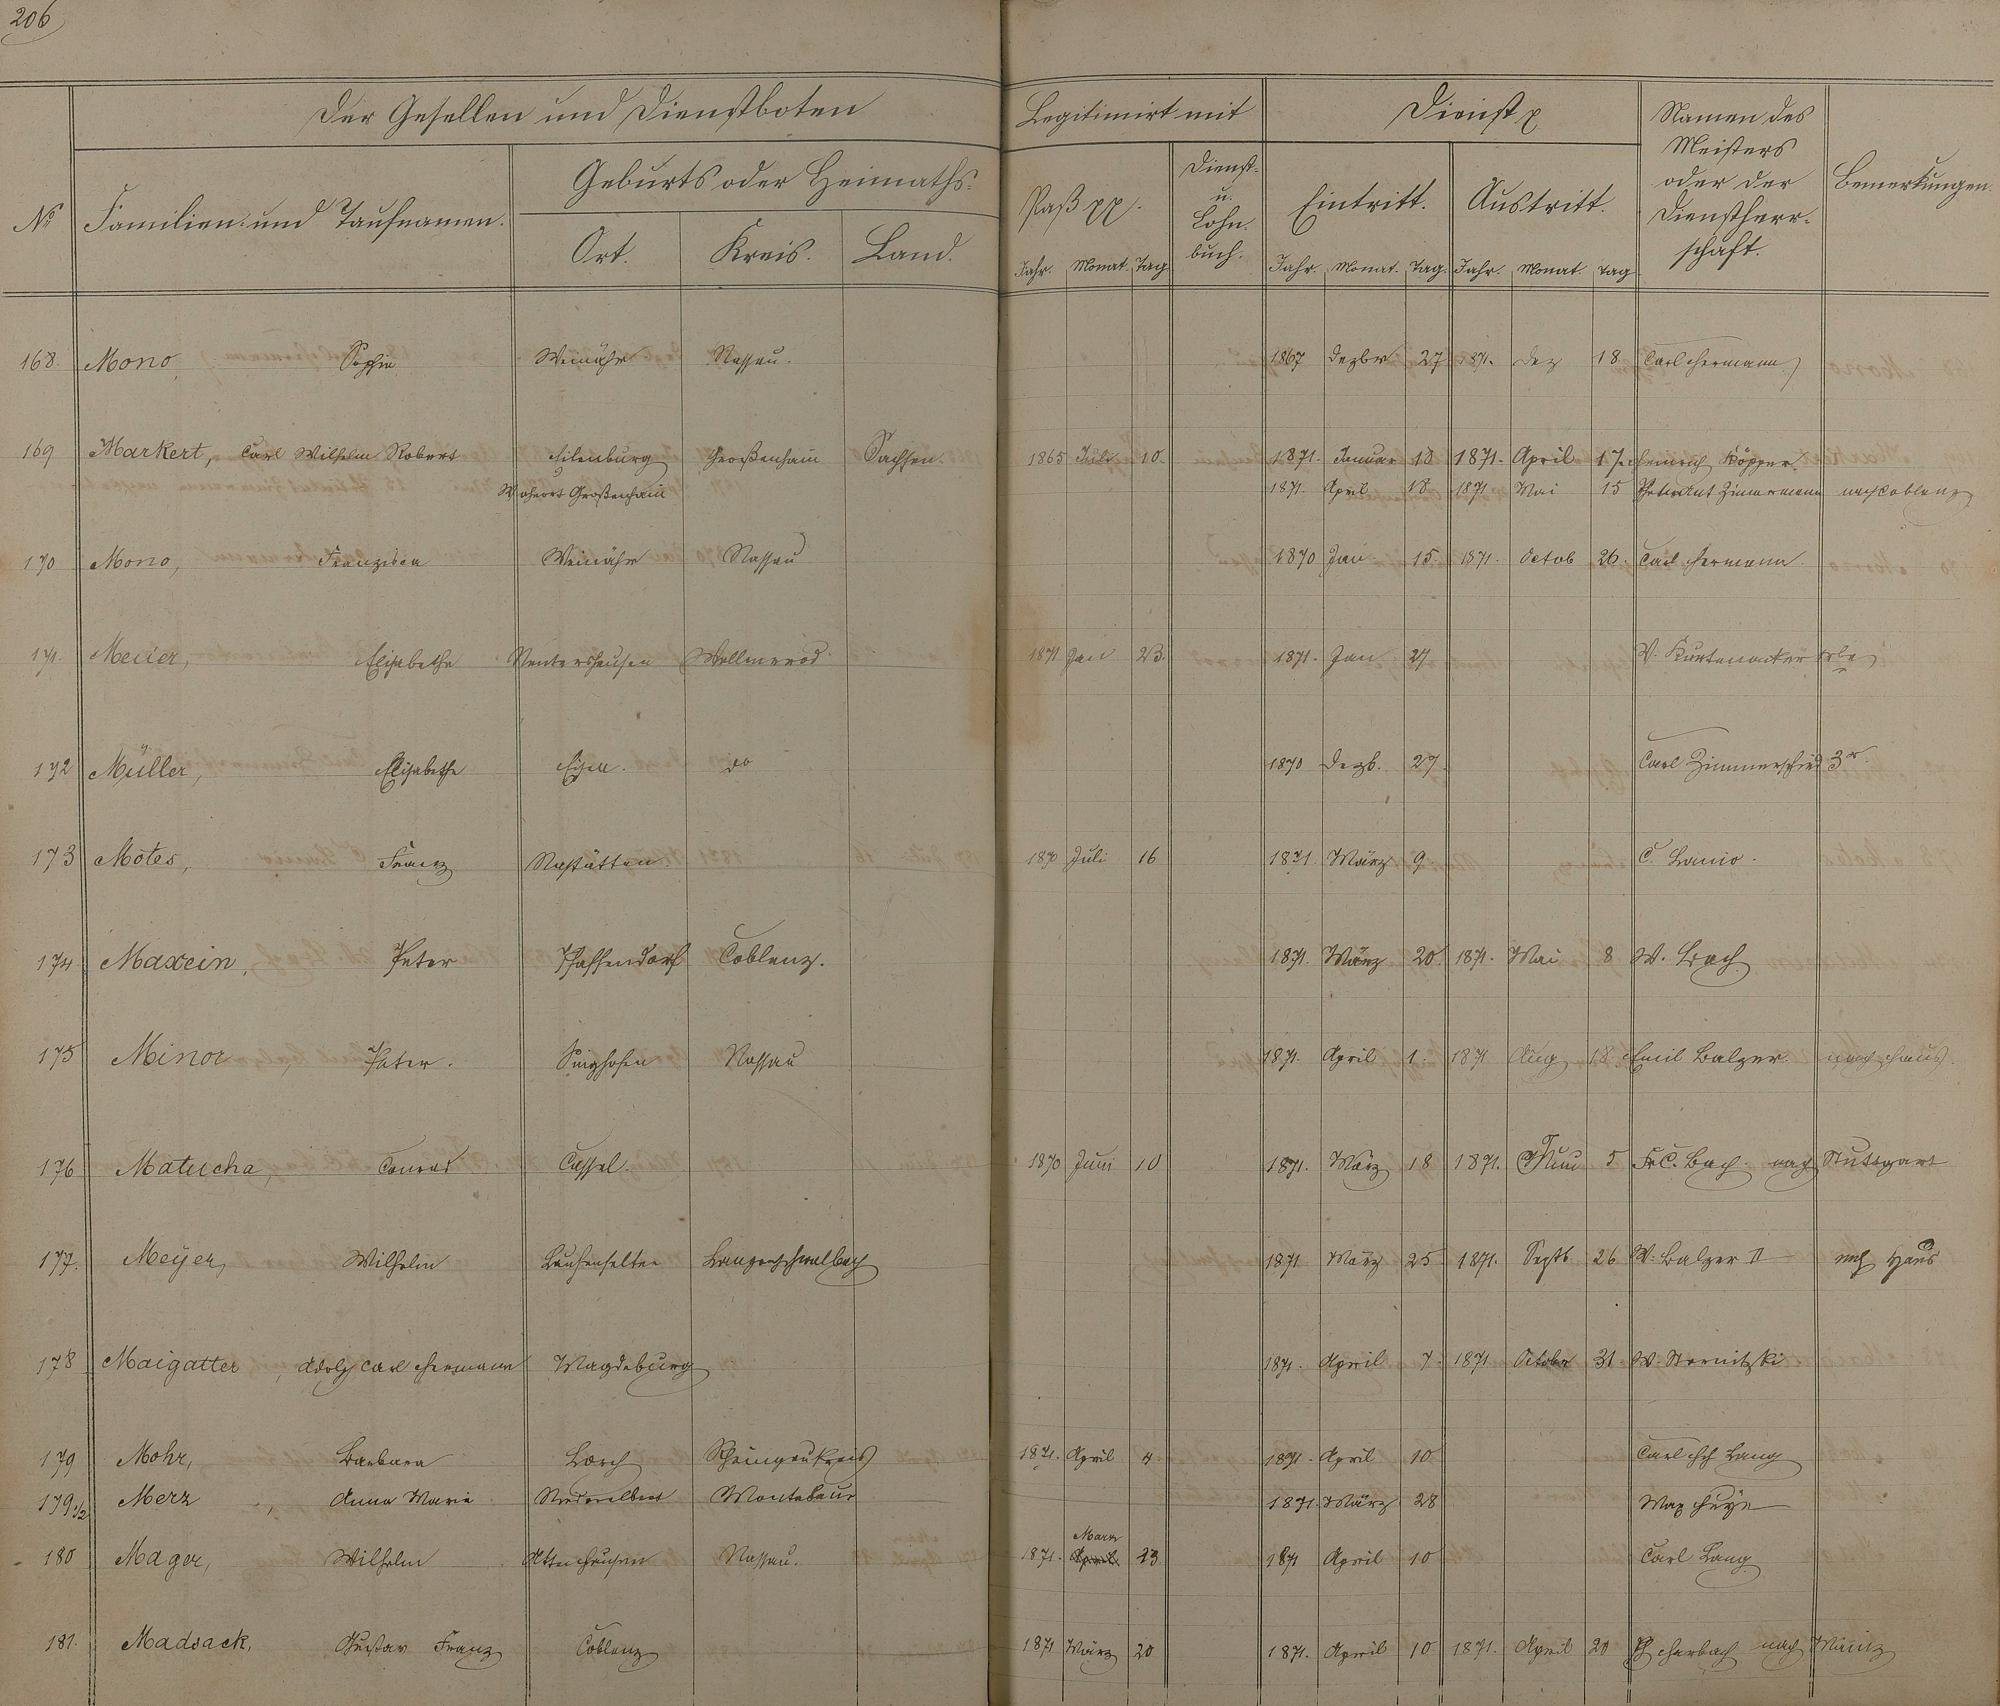 206
Der Gesellen und Dienstboten
Legitimirt mit
Dienst
Namen des Meisters oder der Dienstherr-schaft.
Bemerkungen.
No
Familien- und Taufnamen.
Geburts oder Heimaths-
Ort. Kreis. Land.
Paß pp.
Dienst- u. Lohn-buch.
Eintritt. Austritt.
Jahr. Monat. Tag. Jahr. Monat. Tag. Jahr. Monat. Tag
168. Mono, Sophie Weinähr Nassau. 1867 Dezbr 27 1871. Dez 18 Carl Hermann
169 Markert, Carl Wilhelm Robert Eilenburg Großenhain Sachsen. 1865 Juli 10. 1871. Januar 18 1871. April 17. Heinrich Köpper.
Wohnort Großenhain 1871. April 18 1871 Mai 15 Peter Ant Zimmermann nach Coblenz
170 Mono, Franziska Weinähr Nassau 1870 Jan 15. 1871. Octob 26. Carl Hermann.
171. Meuer, Elisabethe Wentershausen Wallmerod 1871 Jan 23. 1871. Jan 27
172 Müller, Elisabethe do 1870 Dezb. 27. Carl Zimmerschied 3r.
173 Motes, Franz Nastätten. 1870 Juli 16 1871 März 9 C. Lanio.
174 Maxein, Peter Pfaffendorf Coblenz. 1871. März 20. 1871. Mai 8 W. Bach
175 Minor, Peter. Singhofen Nassau 1871. April 1. 1871 Aug 18 Emil Balzer. nach Haus.
176 Matucha, Conrad Cassel. 1870 Juni 10 1871. März 18 1871. Juni 5 Fr. C. Bach. nach Stuttgart
177. Meyer, Wilhelm Laufenselten Langenschwalbach 1871 März 25 1871. Septb 26 W. Balzer II nach Haus
178 Maigatter, Adolf Carl Hermann Magdeburg 1871. April 7. 1871 October 31 W. Stornitzki
179 Mohr, Barbara Lorch Rheingaukreis 1871. April 4. 1871. April 10 Carl Hch Lang
179 1/2 Merz, Anna Marie Niederelbert Montabaur 1871. März 28 Max Heye
180 Mager, Wilhelm Attenhausen Nassau. 1871. April März 23 1871 April 10 Carl Lang
181. Madsack, Gustav Franz Coblenz 1871 März 20 1871. April 10 1871. April 20 Herbach nach Mainz